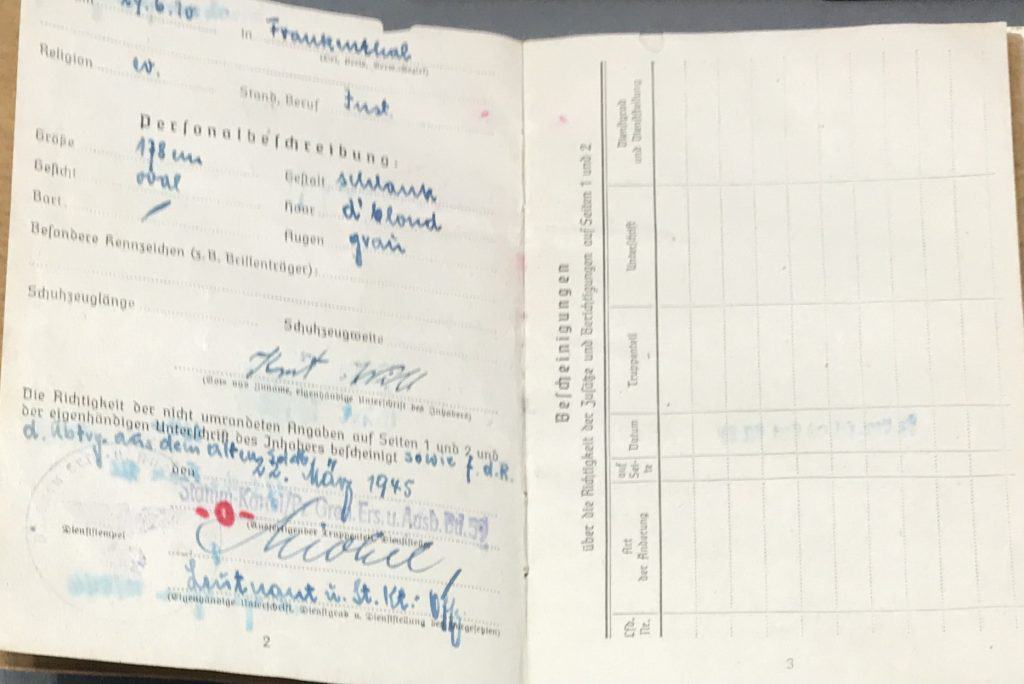 27.6.10 in Frankenthal
(Ort, Kreis, Verw.-Bezirk)
Religion ev.
Stand, Beruf
Personalbeschreibung:
Größe 178 cm
Gestalt schlank
Gesicht oval
Haar d'blond
Bart /
Augen grau
Besondere Kennzeichen (z. B. Brillenträger):
Schuhzeuglänge
Schuhzeugweite
Kurt Will
(Vor- und Zuname, eigenhändige Unterschrift des Inhabers)
Die Richtigkeit der nicht umrandeten Angaben auf Seiten 1 und 2 und
der eigenhändigen Unterschrift des Inhabers bescheinigt sowie f. d. R.
d. Übtrg. aus dem alten Soldb.
den 22. März 1945
Stamm-Komp. Gren. Ers. u. Ausb. Btl.
(Ausfertigender Truppenteil, Dienststelle)
Dienststempel
Leutnant u. St. Kp.-Offz.
(Eigenhändige Unterschrift, Dienstgrad u. Dienststellung des Vorgesetzten)
2
Bescheinigungen
über die Richtigkeit der Zusätze und Berichtigungen auf Seiten 1 und 2
Lfd. Nr.
Art der Änderung
auf Seite
Datum
Truppenteil
Unterschrift
Dienstgrad und Dienststellung
3